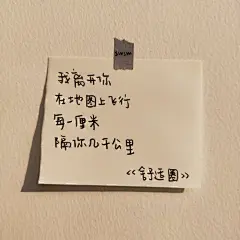 swim
我离开你
在地图上飞行
每一厘米
隔你几千公里
《舒适圈》